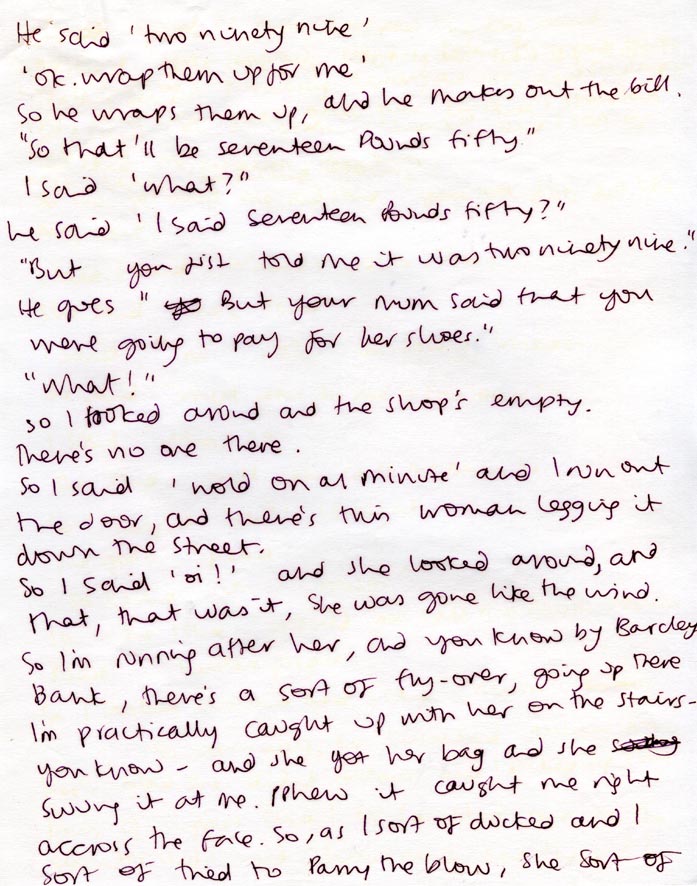 He said 'two ninety nine'
'ok. wrap them up for me'
So he wraps them up, and he makes out the bill.
"So that'll be seventeen Pounds fifty."
I said 'what?"
he said 'I said seventeen Pounds fifty?"
"But you just told me it was two ninety nine."
He goes " But your mum said that you
were going to pay for her shoes."
"What!"
so I looked around and the shop's empty.
There's no one there.
So I said 'hold on a minute' and I run out
the door, and there's this woman legging it
down the street.
So I said 'oi!' and she looked around, and
that, that was it, she was gone like the wind.
So I'm running after her, and you know by Barcley
Bank, there's a sort of fly-over, going up there
I'm practically caught up with her on the stairs-
you know - and she got her bag and she
swung it at me. Phew it caught me right
accross the face. So, as I sort of ducked and I
sort of tried to Parry the blow, she sort of